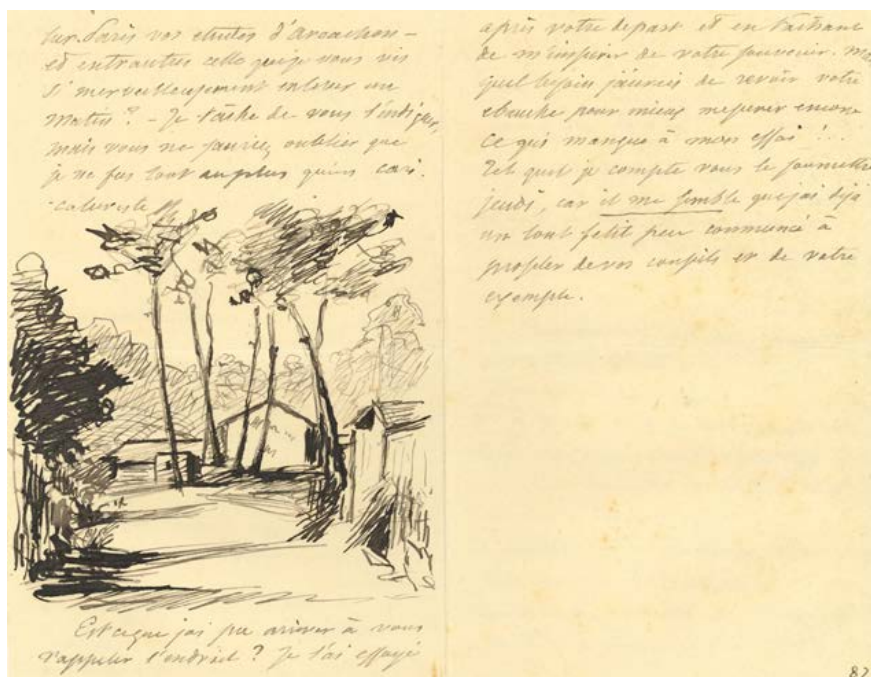 sur Paris vos études d'Arcachon –
et entr'autres celle que je vous vis
si merveilleusement enlever un
matin? – Je tâche de vous l'indiquer,
mais vous ne sauriez oublier que
je ne fus tout au plus qu'un cari-
-caturiste
Est-ce que j'ai pu arriver à vous
rappeler l'endroit? Je l'ai essayé
après votre départ et en tâchant
de m'inspirer de votre souvenir.
quel besoin j'aurais de revoir votre
ébauche pour mieux mesurer encore
ce qui manque à mon essai!...
Tel quel je compte vous le soumettre
jeudi, car il me semble que j'ai déjà
un tout petit peu commencé à
profiter de vos conseils et de votre
exemple.
82